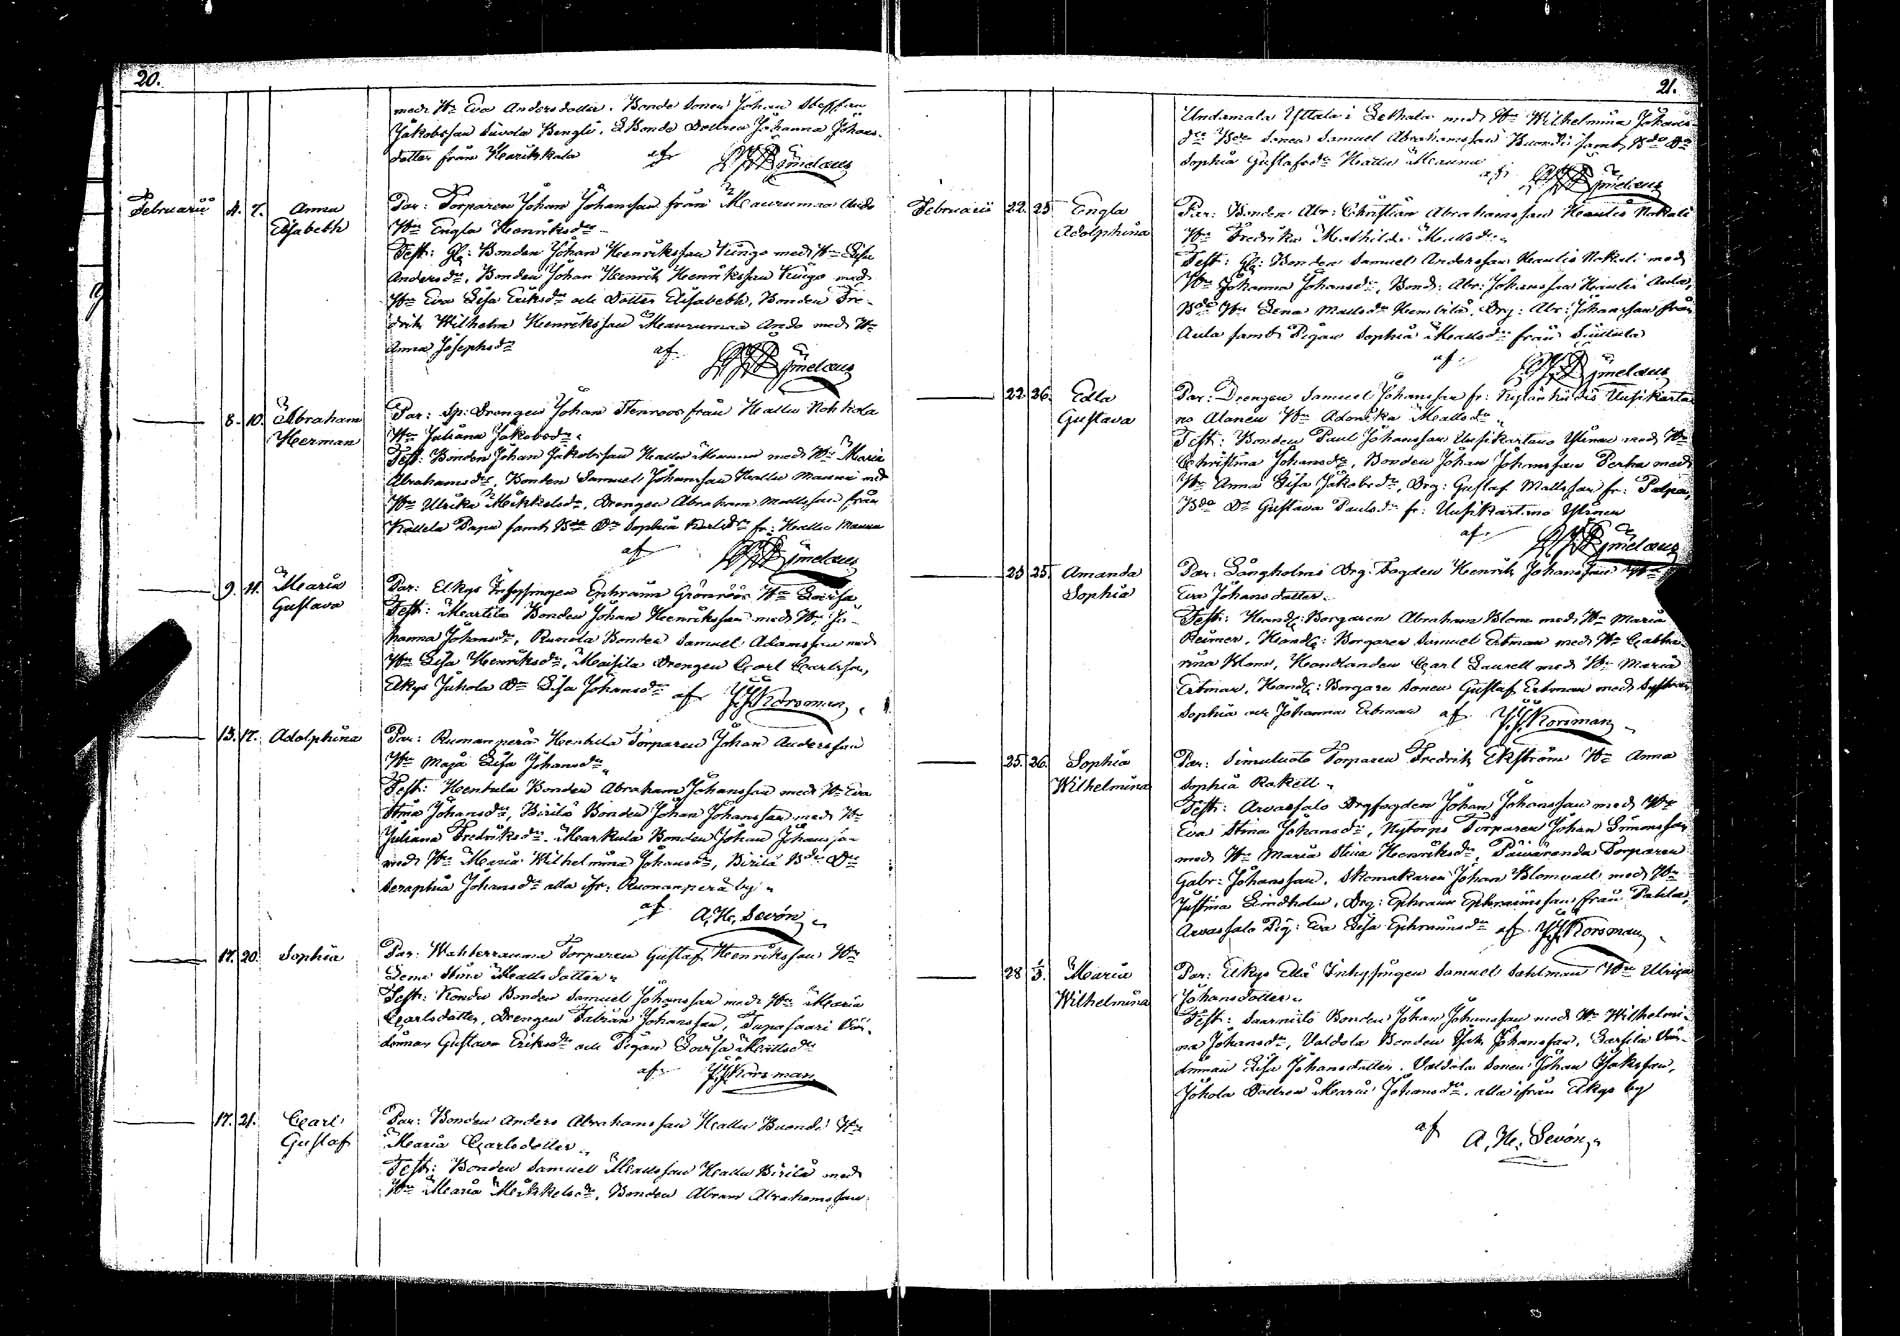 20.
med H:u Eva Andersdotter. Bonde Sonen Johan Steffan
Jakobsson Suvola Bengts. Bonde Dottren Johanna Johans
dotter från Henrikkala af
Februarii 4. 7. Anna Elisabeth
Par: Torparen Johan Johansson från Maurumaa Ando
H:u Engla Henriksd:r
Test: Gl: Bonden Johan Henriksson Kingo med H:u Lisa
Andersd:r, Bonden Johan Henrik Henriksson Kingo med
H:u Eva Lisa Eriksd:r och Dotter Elisabeth, Bonden Fre-
drik Wilhelm Henriksson Maurumaa Ando med H:u
Anna Josephsd:r af
8. 10. Abraham Herman
Par: Sp: Drengen Johan Stenroos från Kallu Nohkola
H:u Juliana Jakobsd:r
Test: Bonden Johan Jakobsson Kallu Maunu med H:u Maria
Abrahamsd:r, Bonden Samuel Johansson Kallu Maunu med
H:u Ulrika Mickkelsd:r, Drengen Abraham Mattsson från
Kallela Papu samt B:de D:r Sophia Karlsd:r fr: Kallu Maunu
af
9. 11. Maria Gustava
Par: Elkys Inhysingen Enhraim Grönroos H:u Lovisa
Test: Marttila Bonden Johan Henriksson med H:u Jo-
hanna Johansd:r, Runola Bonden Samuel Adamsson med
H:u Lisa Henriksd:r, Maisila Drengen Carl Carlsson,
Elkys Juhola D:r Lisa Johansd:r af J. J. Korsman
13. 17. Adolphina
Par: Ruonanperä Hentula Torparen Johan Andersson
H:u Maja Lisa Johansd:r
Test: Hentula Bonden Abraham Johansson med H:u Eva
Stina Johansd:r, Birilä Bonden Johan Johansson med H:u
Juliana Fredriksd:r. Markula Bonden Johan Johansson
med H:u Maria Wilhelmina Johansd:r, Birilä B:de D:r
Seraphia Johansd:r alla ifr: Ruonanperä by
af A. H. Sevón
17. 20. Sophia
Par: Wahterrauma Torparen Gustaf Henriksson H:u
Lena Stina Mattsdotter
Test: Kondu Bonden Samuel Johansson med H:u Maria
Carlsdotter, Drengen Fabian Johansson, Tupasaari Vär-
dinnan Gustava Eriksd:r och Pigan Lovisa Mattsd:r
af J. J. Korsman
17. 21. Carl Gustaf
Par: Bonden Anders Abrahamsson Kallu Buondi H:u
Maria Carlsdotter
Test: Bonden Samuel Mattsson Kallu Birilä med
H:u Maria Mickkelsd:r, Bonden Abram Abrahamsson
21.
Undamala Yttala i Lethala med H:u Wilhelmina Johans-
d:r B:de Sonen Samuel Abrahamsson Buondi samt B:de D:r
Sophia Gustafsd:r Kallu Maunu
af
Februarii 22. 25 Engla Adolphina
Par: Bonden Abr: Christian Abrahamsson Haulis Nokali
H:u Fredrika Mathilda Mattsd:r
Test: Gl: Bonden Samuel Andersson Haulis Nokali med
H:u Johanna Johansd:r, Bond: Abr: Johansson Haulis Aula,
B:de H:u Lena Mattsd:r Humbila, Drg: Abr: Johansson från
Aula samt Pigan Sophia Mattsd:r från
af
22. 26. Edla Gustava
Par: Drengen Samuel Johansson fr: Uusikarta
no Alanen H:u Adorika Mattsd:r
Test: Bonden Paul Johansson Uusikartano Ylinen med H:u
Christina Johansd:r, Bonden Johan Johansson Perha med
H:u Anna Lisa Jakobsd:r, Drg: Gustaf Mattsson fr: Palpa,
B:de D:r Gustava Paulsd:r fr: Uusikartano Ylinen
af
23 25. Amanda Sophia
Par: Långholms Drg. Fogden Henrik Johansson H:u
Eva Johansdotter
Test: Handl: Borgaren Abraham Blom med H:u Maria
Reimer, Handl: Borgaren Samuel Ertman med H:u Catha-
rina Blom, Handlanden Carl Laurell med H:u Maria
Ertman, Handl: Borgare Sonen Gustaf Ertman med Systrar
Sophia och Johanna Ertman af J. J. Korsman
25. 26. Sophia Wilhelmina
Par: Simuluoto Torparen Fredrik Ekström H:u Anna
Sophia Rakell
Test: Arvassalo Drgfogden Johan Johansson med H:u
Eva Stina Johansd:r, Nytorps Torparen Johan Simonsson
med H:u Maria Stina Henriksd:r, Päiväranda Torparen
Gabr: Johansson, Skomakaren Johan Blomvall med H:u
Justina Lindholm, Drg: Ephraim Ephraimsson från Pahla,
Arvassalo Pig: Eva Lisa Ephraimsd:r af J. J. Korsman
28 1/3. Maria Wilhelmina
Par: Elkys Ellä Inhysingen Samuel Sahlman H:u Ulrika
Johansdotter
Test: Saarniitö Bonden Johan Johansson med H:u Wilhelmi-
na Johansd:r, Valdola Bonden Isak Johansson, Sersila Vär-
dinnan Lisa Johansdotter. Valdola Sonen Johan Isaksson,
Johola Dottren Maria Johansd:r. alla ifrån Elkys by
af A. H. Sevón